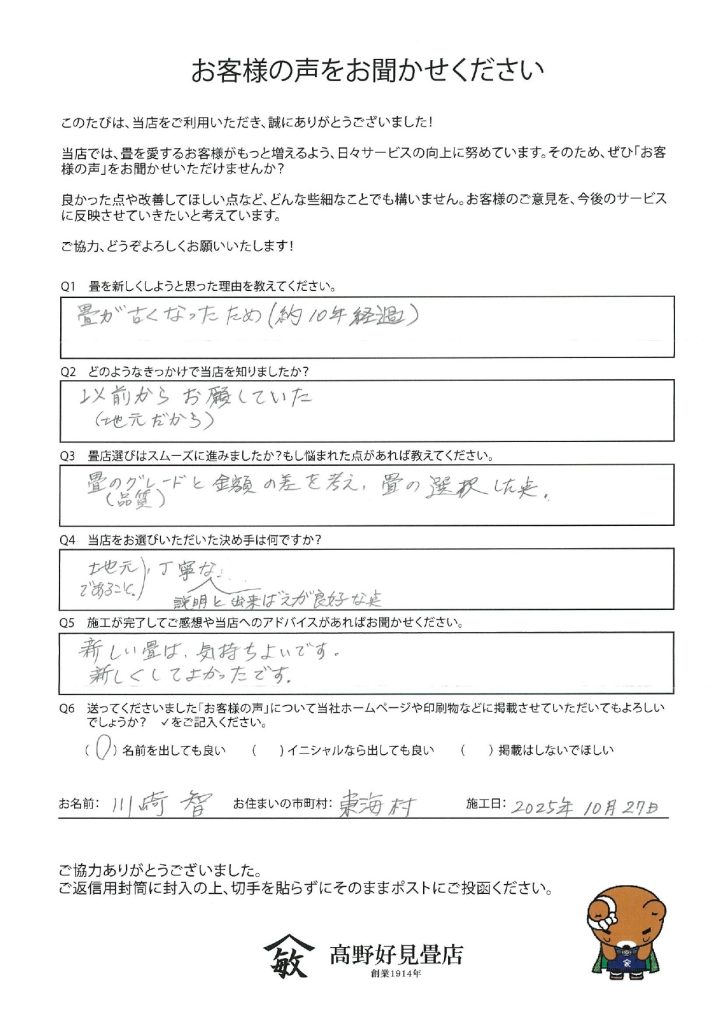 お客様の声をお聞かせください
このたびは、当店をご利用いただき、誠にありがとうございました!
当店では、畳を愛するお客様がもっと増えるよう、日々サービスの向上に努めています。そのため、ぜひ「お客
様の声」をお聞かせいただけませんか?
良かった点や改善してほしい点など、どんな些細なことでも構いません。お客様のご意見を、今後のサービス
に反映させていきたいと考えています。
ご協力、どうぞよろしくお願いいたします!
Q1 畳を新しくしようと思った理由を教えてください。
畳が古くなったため(約10年経過)
Q2 どのようなきっかけで当店を知りましたか?
以前からお願していた
(地元だから)
Q3 畳店選びはスムーズに進みましたか?もし悩まれた点があれば教えてください。
畳のグレードと金額の差を考え、畳の選択した点。
(品質)
Q4 当店をお選びいただいた決め手は何ですか?
地元、丁寧な
であること。
説明と出来ばえが良好な点
Q5 施工が完了してご感想や当店へのアドバイスがあればお聞かせください。
新しい畳は、気持ちよいです。
新しくしてよかったです。
Q6 送ってくださいました「お客様の声」について当社ホームページや印刷物などに掲載させていただいてもよろしい
でしょうか? ✓をご記入ください。
(○)名前を出しても良い ( )イニシャルなら出しても良い ( )掲載はしないでほしい
お名前: 川崎 智 お住まいの市町村: 東海村 施工日: 2025年10月27日
ご協力ありがとうございました。
ご返信用封筒に封入の上、切手を貼らずにそのままポストにご投函ください。
敏 髙野好見畳店
創業1914年
敏